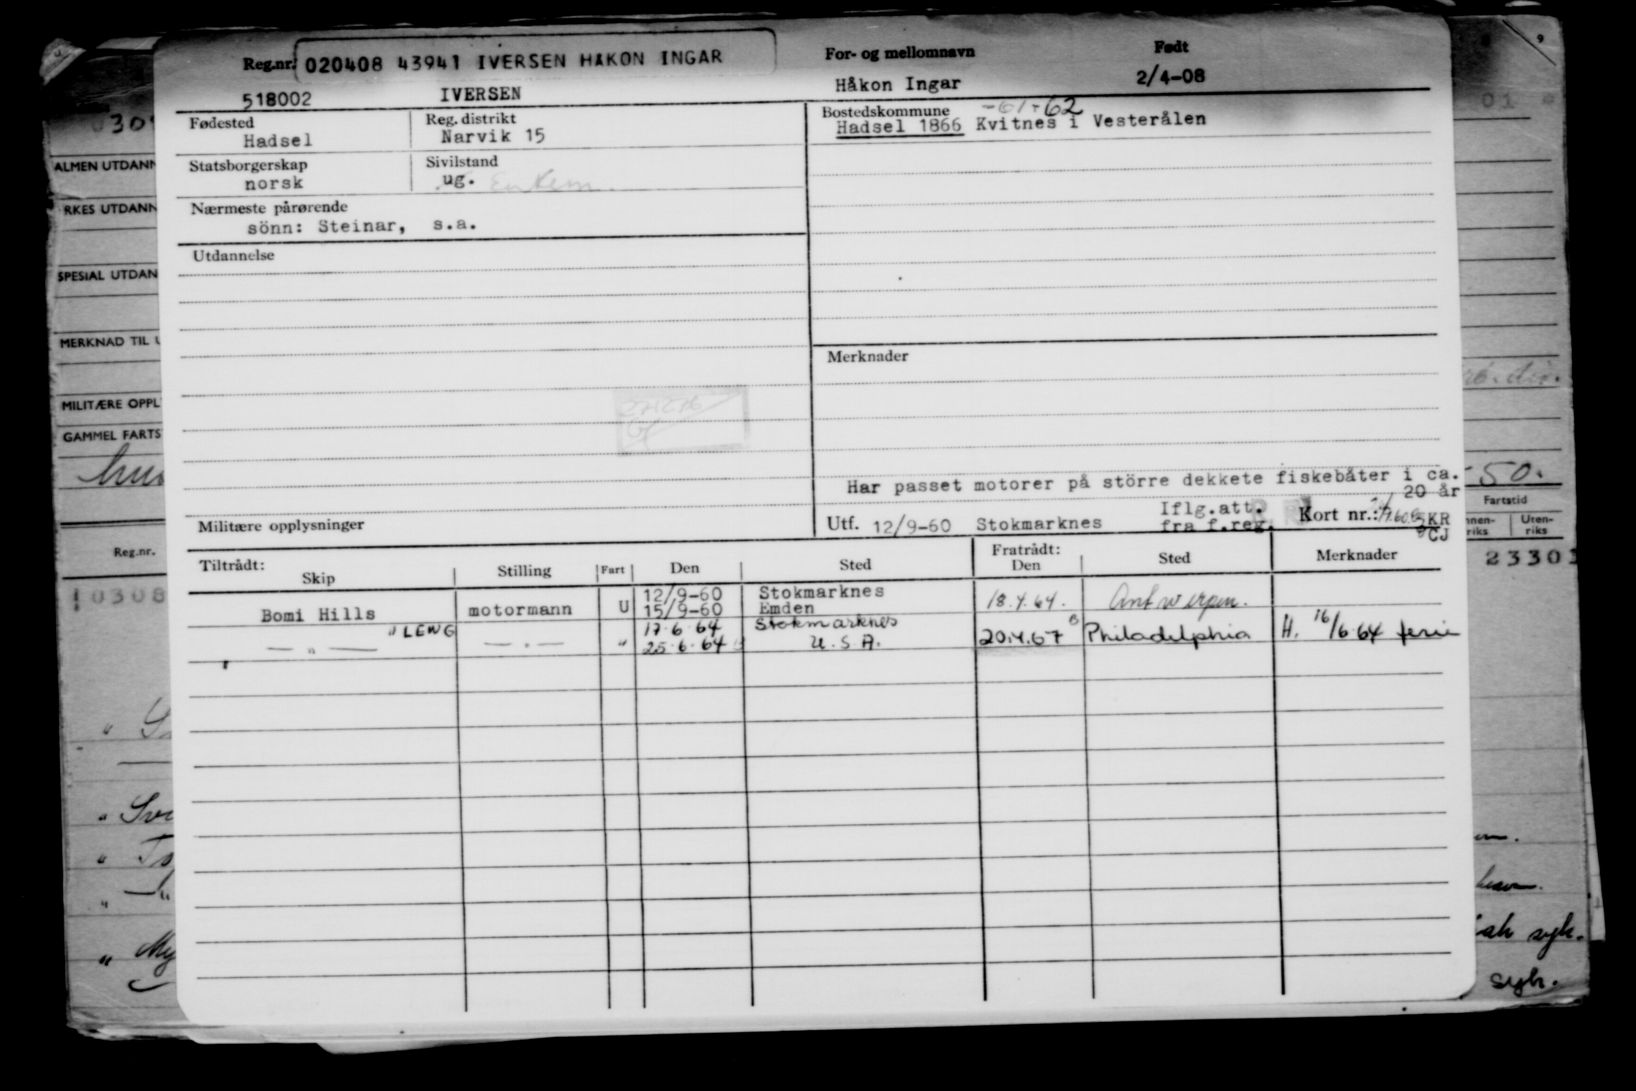 Reg.nr. 020408 43941 IVERSEN HÅKON INGAR
For- og mellomnavn
Født
518002
IVERSEN
Håkon Ingar
2/4-08
Fødested
Reg. distrikt
Bostedskommune
-61-62
Hadsel
Narvik 15
Hadsel 1866 Kvitnes i Vesterålen
Statsborgerskap
Sivilstand
norsk
ug.
Nærmeste pårørende
sönn: Steinar, s.a.
Utdannelse
Merknader
Har passet motorer på större dekkete fiskebåter i ca.
20 år
Militære opplysninger
Utf. 12/9-60 Stokmarknes
Iflg.att.
fra f.reg.
Kort nr.:
SKR
CJ
Tiltrådt:
Skip
Stilling
Fart
Den
Sted
Fratrådt:
Den
Sted
Merknader
12/9-60 Stokmarknes
Bomi Hills motormann U 15/9-60 Emden 18.4.64. Antwerpen.
" LEWG 17.6.64 Stokmarknes
— " — — . — " 25.6.64 U.S.A. 20.4.67 Philadelphia H. 16/6.64 ferie
ALMEN UTDANN
RKES UTDANN
SPESIAL UTDAN
MERKNAD TIL U
MILITÆRE OPPL
GAMMEL FARTS
Reg.nr.
0308
01
50.
Fartstid
nnen-
riks
Uten-
riks
23301
syk.
syk.